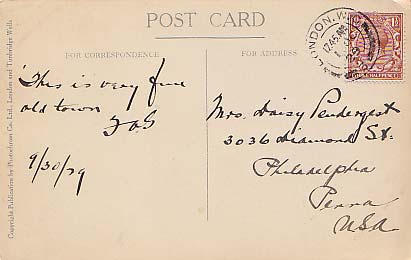 POST CARD
FOR CORRESPONDENCE
FOR ADDRESS
This is very fine
old town
9/30/29
Mrs. Daisy Pendergest
3036 Diamond St.
Philadelphia
Penna
USA
Copyright Publication by Photochrom Co. Ltd., London and Tunbridge Wells
LONDON. W.